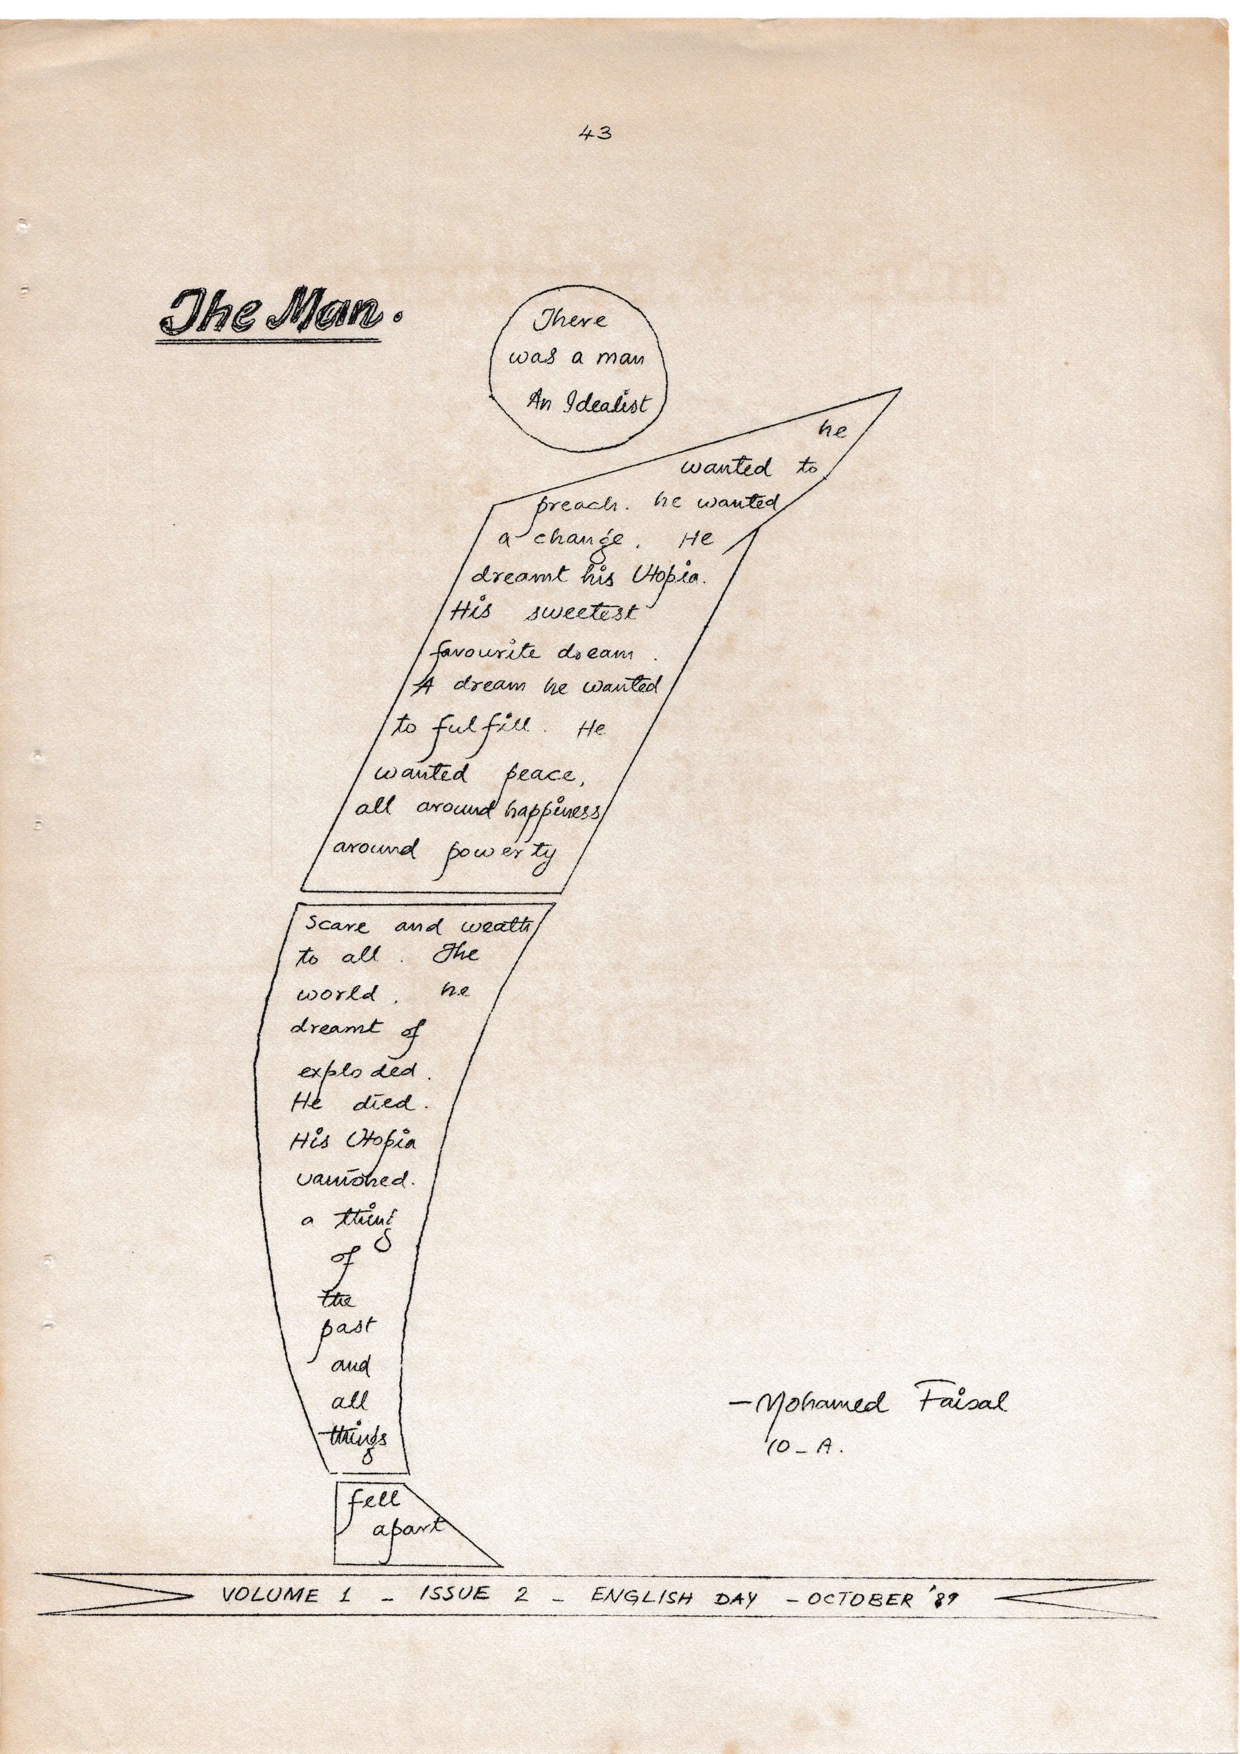 43
The Man.
There
was a man
An Idealist
he
wanted to
preach. he wanted
a change. He
dreamt his Utopia.
His sweetest
favourite dream.
A dream he wanted
to fulfill. He
wanted peace,
all around happiness
around powerty
scare and wealth
to all. The
world, he
dreamt of
exploded.
He died.
His Utopia
vanished.
a thing
of
the
past
and
all
things
fell
apart
—Mohamed Faisal
10-A.
VOLUME 1 - ISSUE 2 - ENGLISH DAY - OCTOBER '89